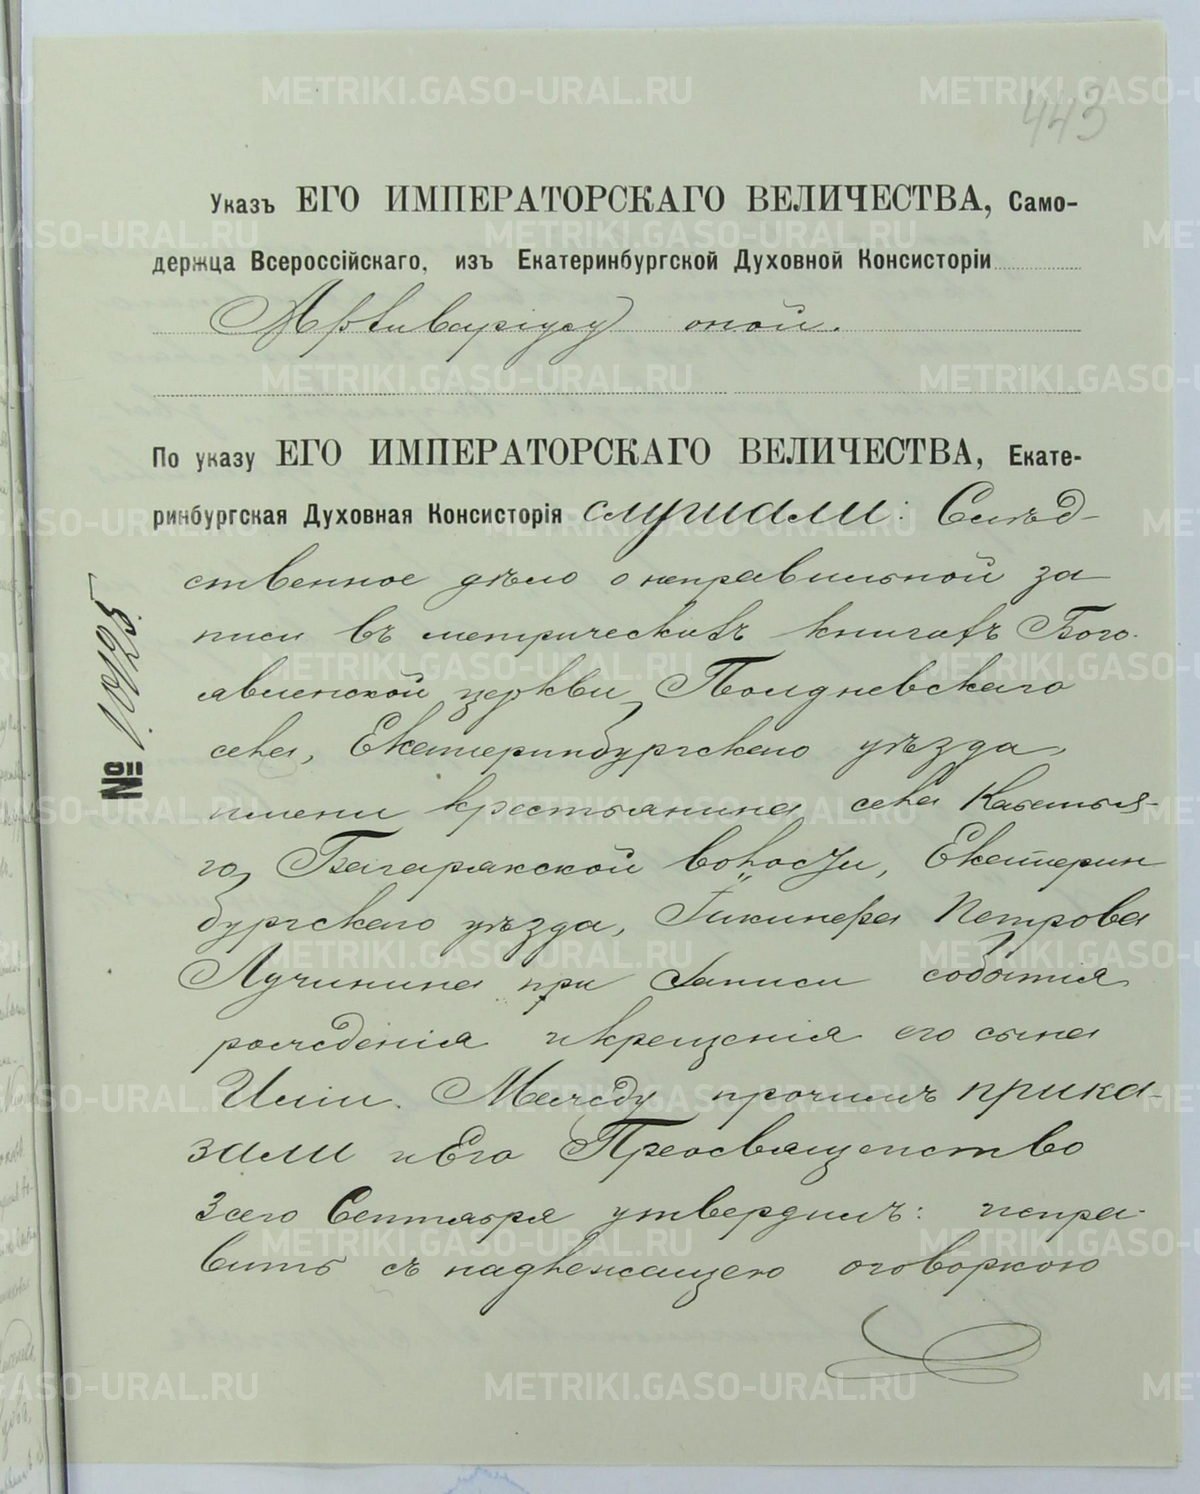 443
Указъ ЕГО ИМПЕРАТОРСКАГО ВЕЛИЧЕСТВА, Само-
держца Всероссійскаго, изъ Екатеринбургской Духовной Консисторіи
Архиваріусу оной.
По указу ЕГО ИМПЕРАТОРСКАГО ВЕЛИЧЕСТВА, Екате-
ринбургская Духовная Консисторія слушали: Слѣд-
ственное дѣло о неправильной за
писи въ метрическихъ книгахъ Бого-
явленской церкви, Полдневскаго
села, Екатеринбургскаго уѣзда,
имени крестьянина села
го, Багарякской волости, Екатерин
бургскаго уѣзда, Петрова
Лучинина при записи событія
рожденія и крещенія его сына
Иліи. Между прочимъ прика-
зали и Его Преосвященство
3 сего Сентября утвердилъ: испра-
вить съ надлежащею оговоркою
№ 10125.
METRIKI.GASO-URAL.RU